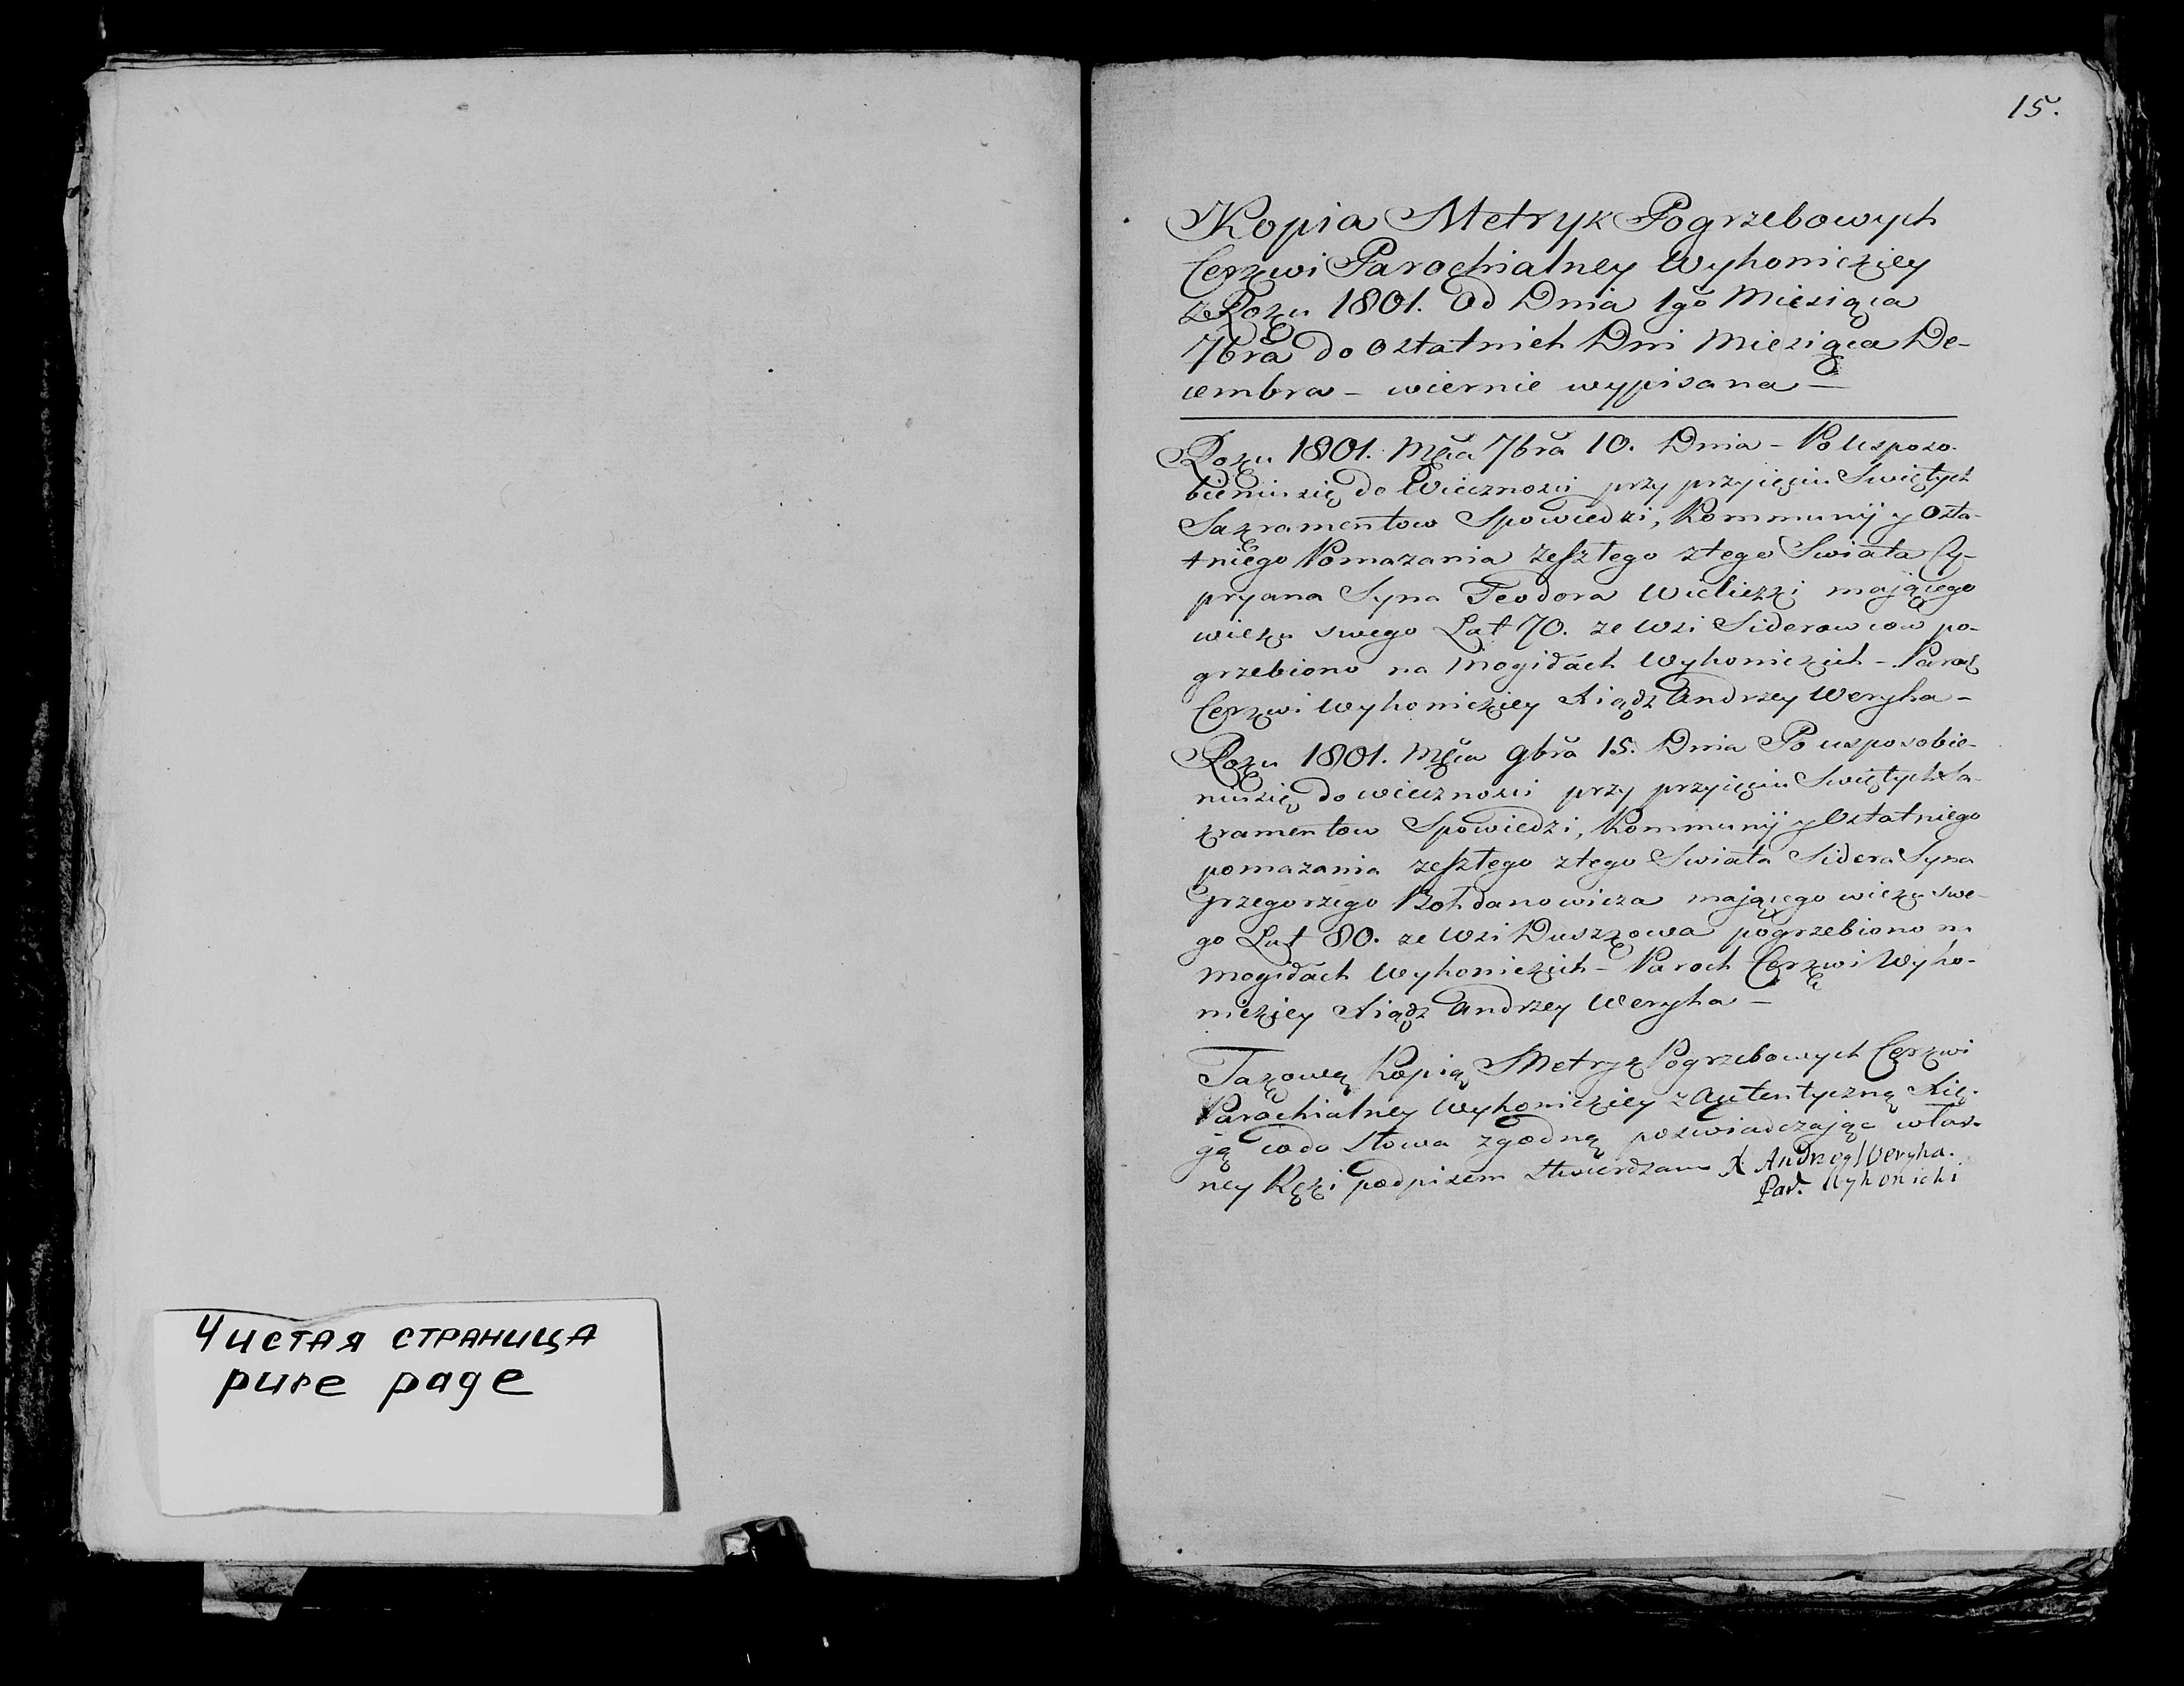 15.
Kopia Metryk Pogrzebowych
Cerkwi Parochialney Wyhonickiey
z Roku 1801. Od Dnia 1go Miesiąca
7bra do Ostatnich Dni Miesiąca De-
cembra - wiernie wypisana -
Roku 1801. Mca 7bra 10. Dnia - Po Usposo-
bieniu się do Wieczności przy przyięciu Swiętych
Sakramentow Spowiedzi, Kommunij y Osta-
tniego Pomazania zeszłego ztego Swiata Cy-
pryana Syna Teodora Wieliczki mającego
wieku swego Lat 70. ze Wsi Siderowcow po-
grzebiono na Mogiłach Wyhonickich - Paroch
Cerkwi Wyhonickiey Xiądz Andrzey Weryha -
Roku 1801. Mca 9bra 15. Dnia Po usposobie-
niu się do wieczności przy przyięciu Swiętych Sa-
kramentow Spowiedzi, Kommunij y Ostatniego
pomazania zeszłego ztego Swiata Sidera Syna
Grzegorzego Bohdanowicza mającego wieku swe-
go Lat 80. ze Wsi Duszkowa pogrzebiono na
Mogiłach Wyhonickich - Paroch Cerkwi Wyho-
nickiey Xiądz Andrzey Weryha -
Takową Kopią Metryk Pogrzebowych Cerkwi
Parochialney Wyhonickiey z Autentyczną Xię-
gą co do Słowa zgodną poswiadczając włas-
ney Ręki podpisem stwierdzam X Andrzey Weryha.
Par. Wyhonicki
Чистая страница
pure page